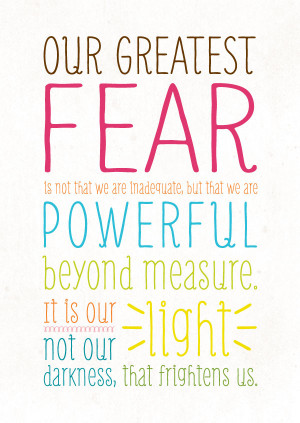 OUR GREATEST
FEAR
is not that we are inadequate, but that we are
POWERFUL
beyond measure.
it is our light
not our
darkness, that frightens us.